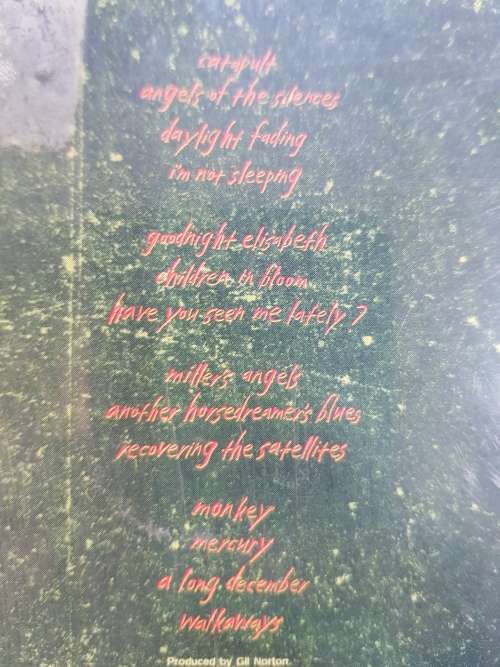 catapult
angels of the silences
daylight fading
i'm not sleeping
goodnight elisabeth
children in bloom
have you seen me lately?
miller's angels
another horsedreamer's blues
recovering the satellites
monkey
mercury
a long december
walkaways
Produced by Gil Norton.